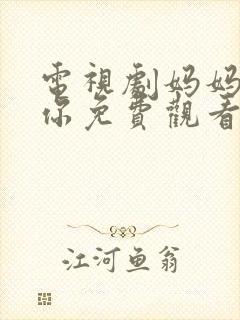 電視劇妈妈
你免費觀看
江河鱼翁